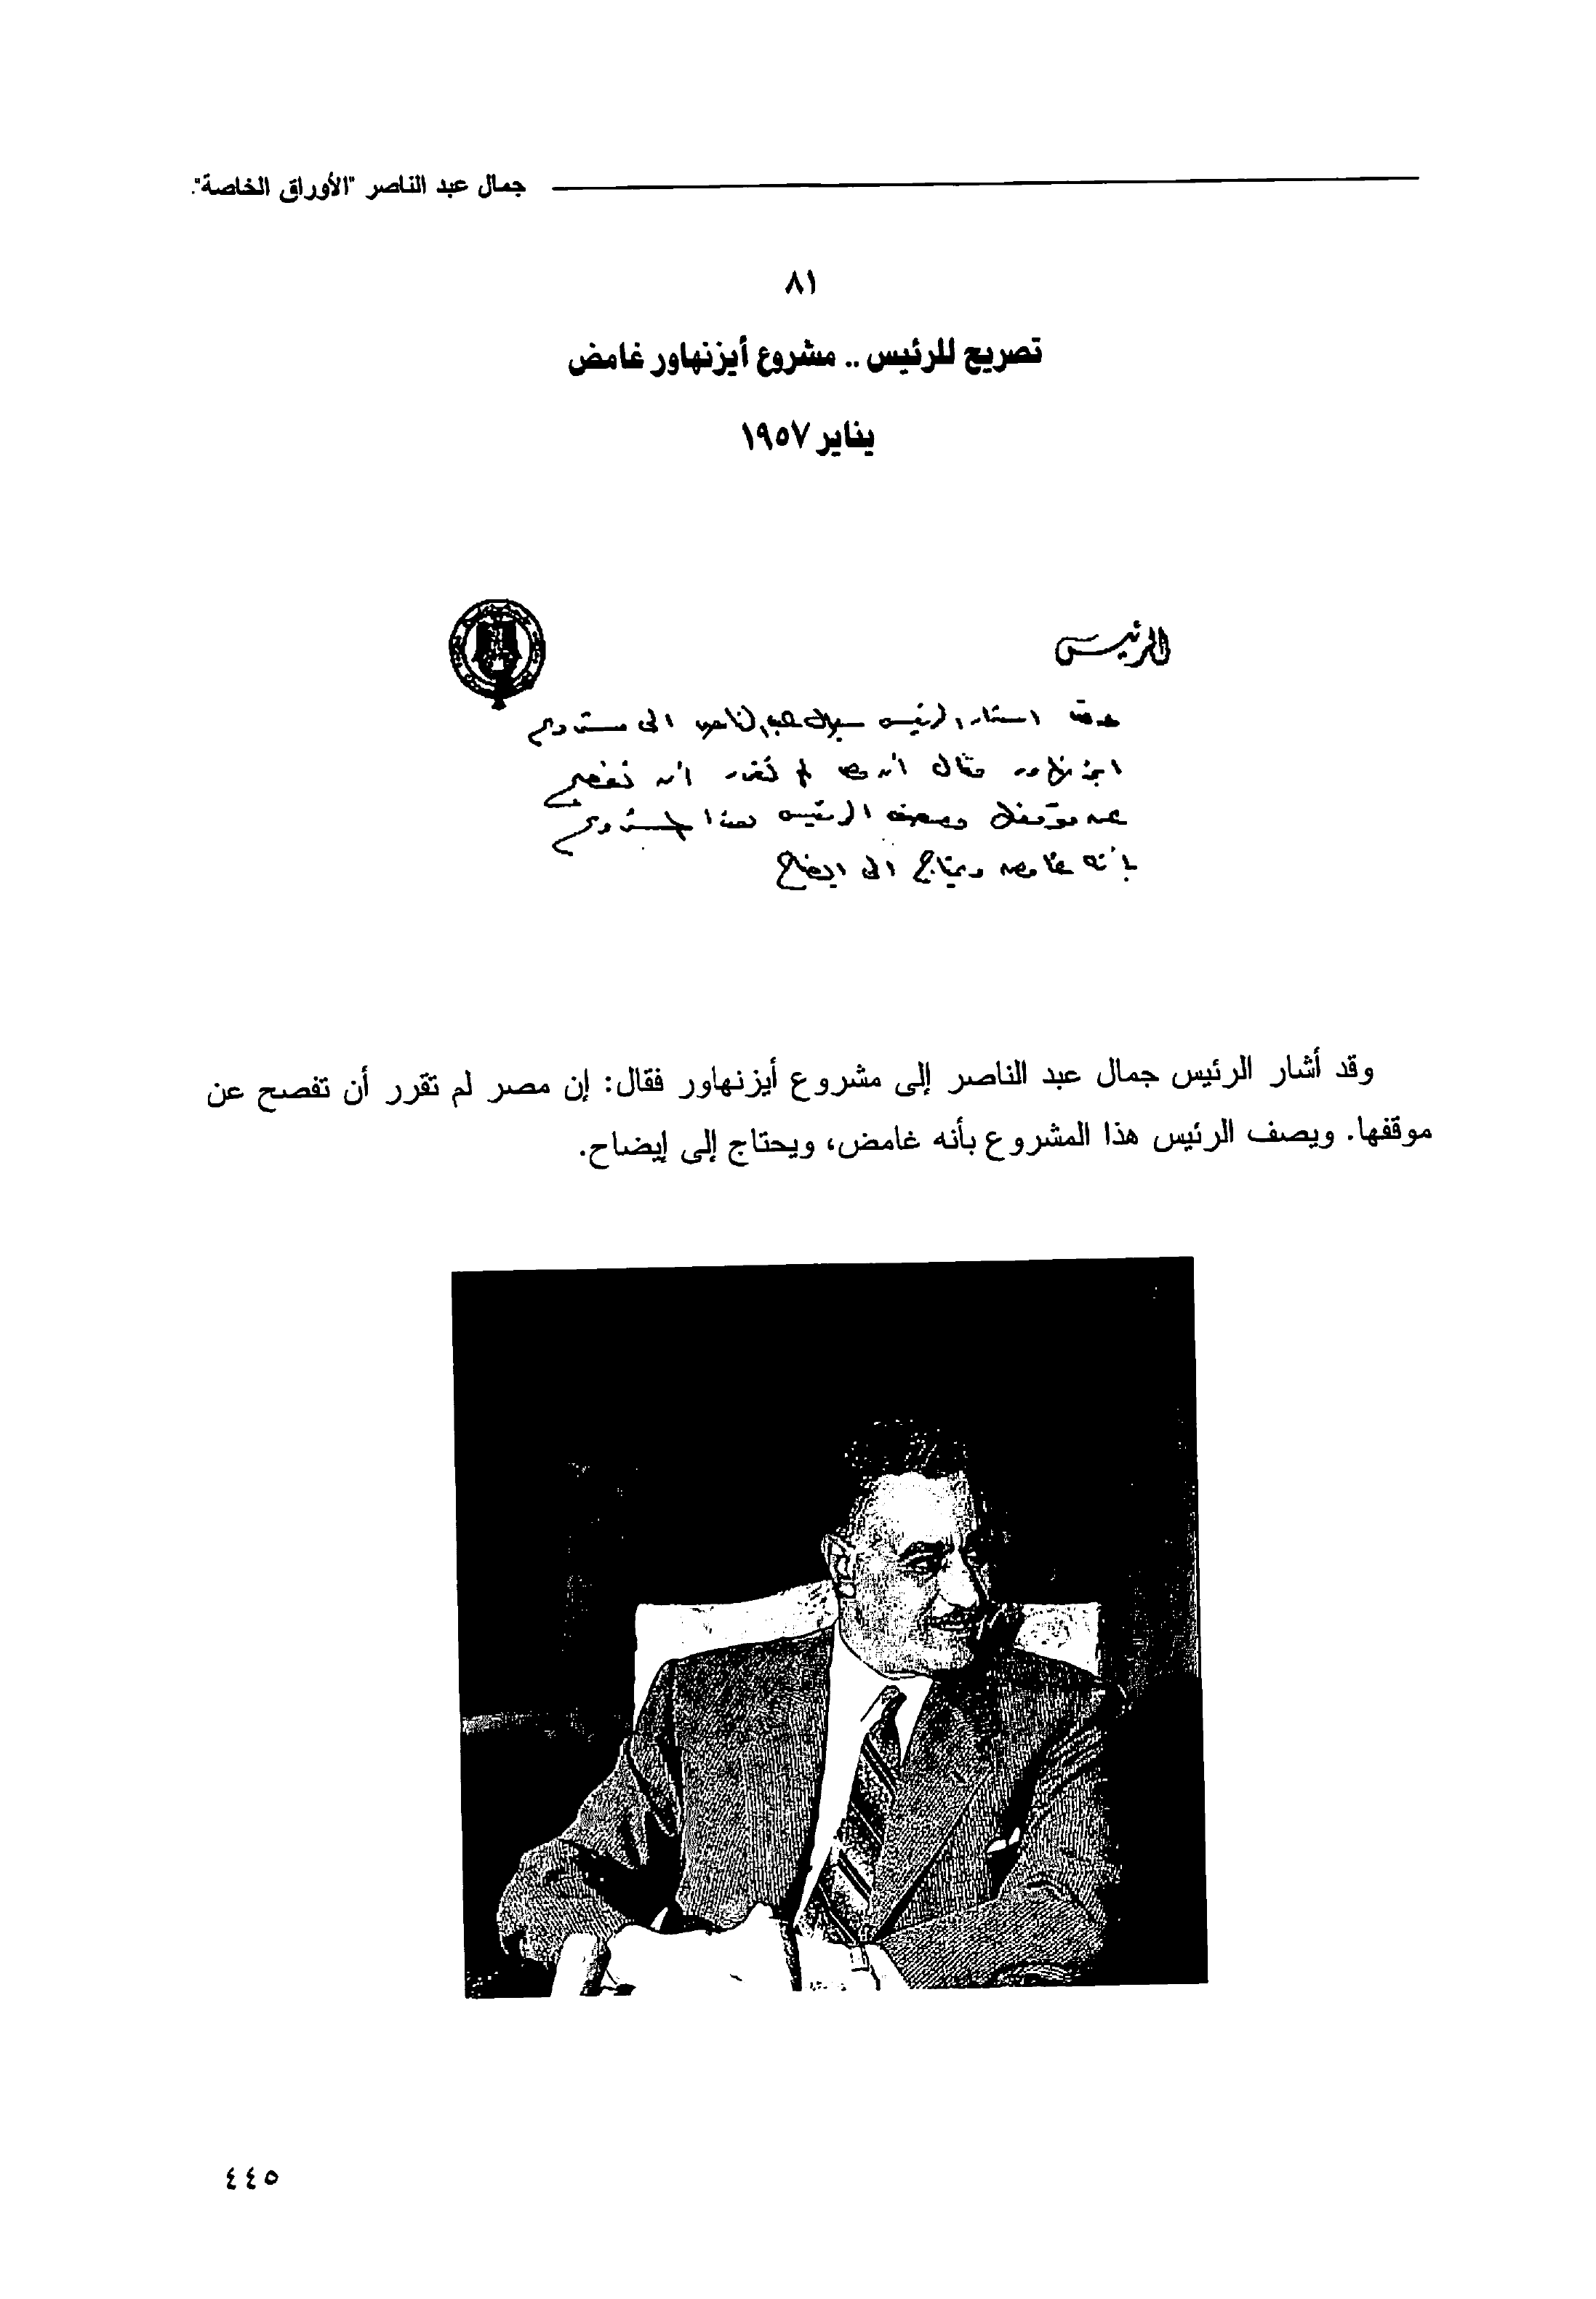 جمال عبد الناصر "الأوراق الخاصة".
٨١
تصريح للرئيس .. مشروع أيزنهاور غامض
يناير ١٩٥٧
الرئيس
وقد اشار الرئيس جمال عبد الناصر الى مشروع
ايزنهاور فقال ان مصر لم تقرر أن تفصح
عن موقفها ويصف الرئيس هذا المشروع
بأنه غامض ويحتاج الى ايضاح
وقد أشار الرئيس جمال عبد الناصر إلى مشروع أيزنهاور فقال: إن مصر لم تقرر أن تفصح عن
موقفها. ويصف الرئيس هذا المشروع بأنه غامض، ويحتاج إلى إيضاح.
٤٤٥